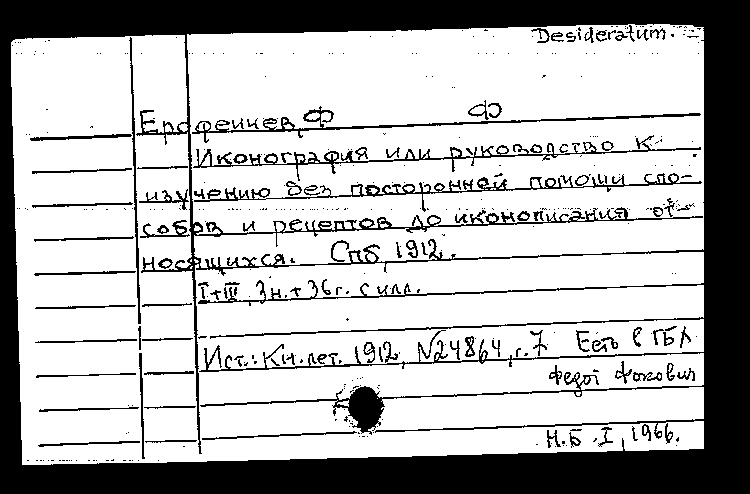 Desideratum.
Ерофеичев, Ф Ф
Иконография или руководство к
изучению без посторонней помощи спо-
собов и рецептов до иконописания от-
носящихся. Спб, 1912.
I+III, 3н.+36г. с илл.
Ист.: Кн. лет. 1912, №24864, г. 7 Есть в ГБЛ
Федот
Н.Б. I, 1966.